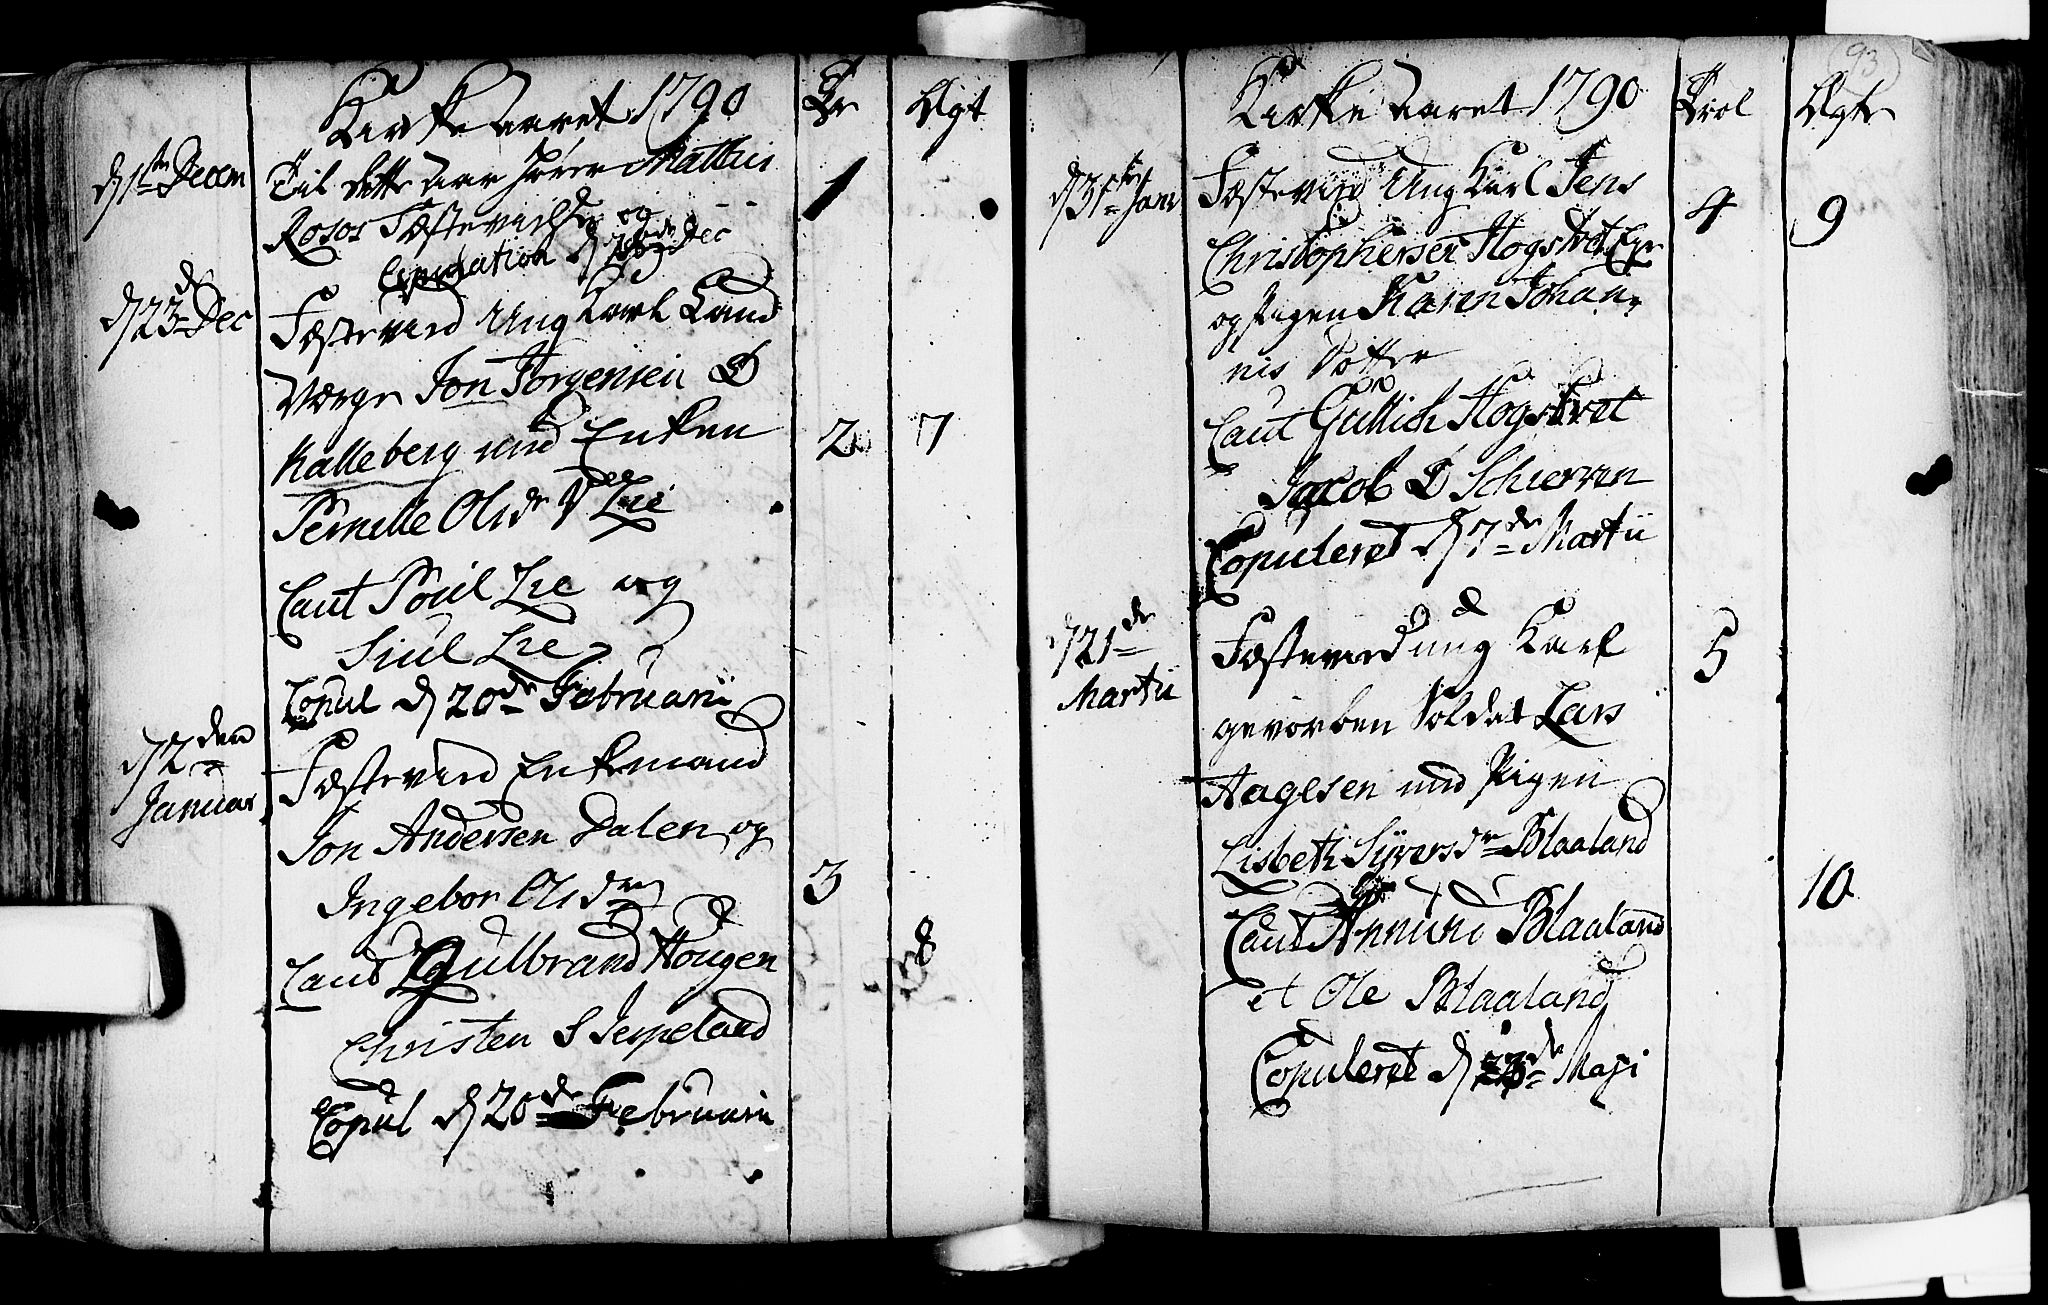 Kirke Aaret 1790
Tr
Ægt
d 1ste Decem
Til dette Aar hører Mattis
Rosos Fæstevielse og
Copulation d Dec
1
d 23de Dec
Fæstevied Ung Karl Land
Værge Jon Jorgensen
Kalleberg med Enken
Pernille Olsdr Lie
2
7
Caut Poul Lie og
Siul Lie
Copul d 20de Februarii
d 2den
Januar
Fæstevied Enkemand
Jon Andersen Dalen og
Ingebor Olsdr
3
8
Caut Gulbrand Hougen
Christen S Jerpeland
Copul d 20de Februarii
93
Kirke Aaret 1790
Trol
Ægte
d 31te Janr
Fæstevied Ung Karl Jens
Christophersen Hogstvet
og Pigen Karen Johan-
nis Dotter
4
9
Caut Gullich Hogstvet
Jacob Schierven
Copuleret d 7de Martii
d 21de
Martii
Fæstevied ung Karl
gevorben Soldat Lars
Aagesen med Pigen
Lisbeth Syversdr Blaaland
5
10
Caut Anmund Blaaland
et Ole Blaaland
Copuleret d 23de Maji